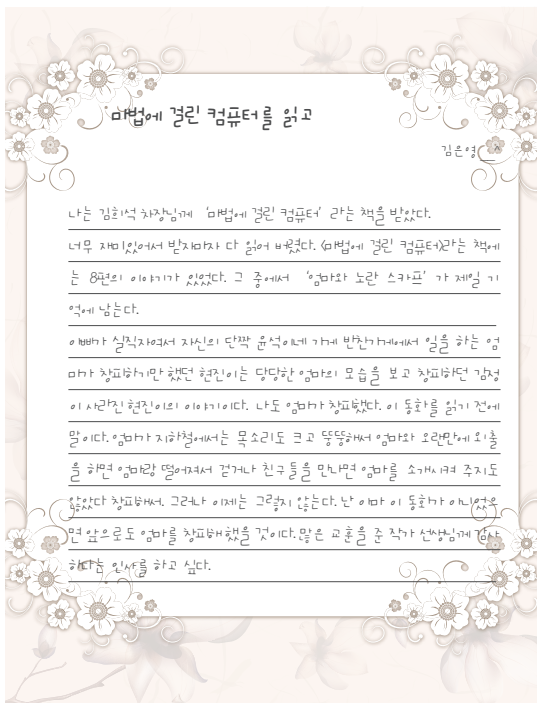 마법에 걸린 컴퓨터를 읽고
김은영
나는 김희석 차장님께 '마법에 걸린 컴퓨터' 라는 책을 받았다.
너무 재미있어서 받자마자 다 읽어 버렸다. <마법에 걸린 컴퓨터>라는 책에
는 8편의 이야기가 있었다. 그 중에서 '엄마와 노란 스카프' 가 제일 기
억에 남는다.
아빠가 실직자여서 자신의 단짝 윤석이네 가게 반찬가게에서 일을 하는 엄
마가 창피하기만 했던 현진이는 당당한 엄마의 모습을 보고 창피하던 감정
이 사라진 현진이의 이야기이다. 나도 엄마가 창피했다. 이 동화를 읽기 전에
말이다. 엄마가 지하철에서는 목소리도 크고 뚱뚱해서 엄마와 오랜만에 외출
을 하면 엄마랑 떨어져서 걷거나 친구들을 만나면 엄마를 소개시켜 주지도
않았다 창피해서. 그러나 이제는 그렇지 않는다. 난 아마 이 동화가 아니었으
면 앞으로도 엄마를 창피해했을 것이다. 많은 교훈을 준 작가 선생님께 감사
하다는 인사를 하고 싶다.